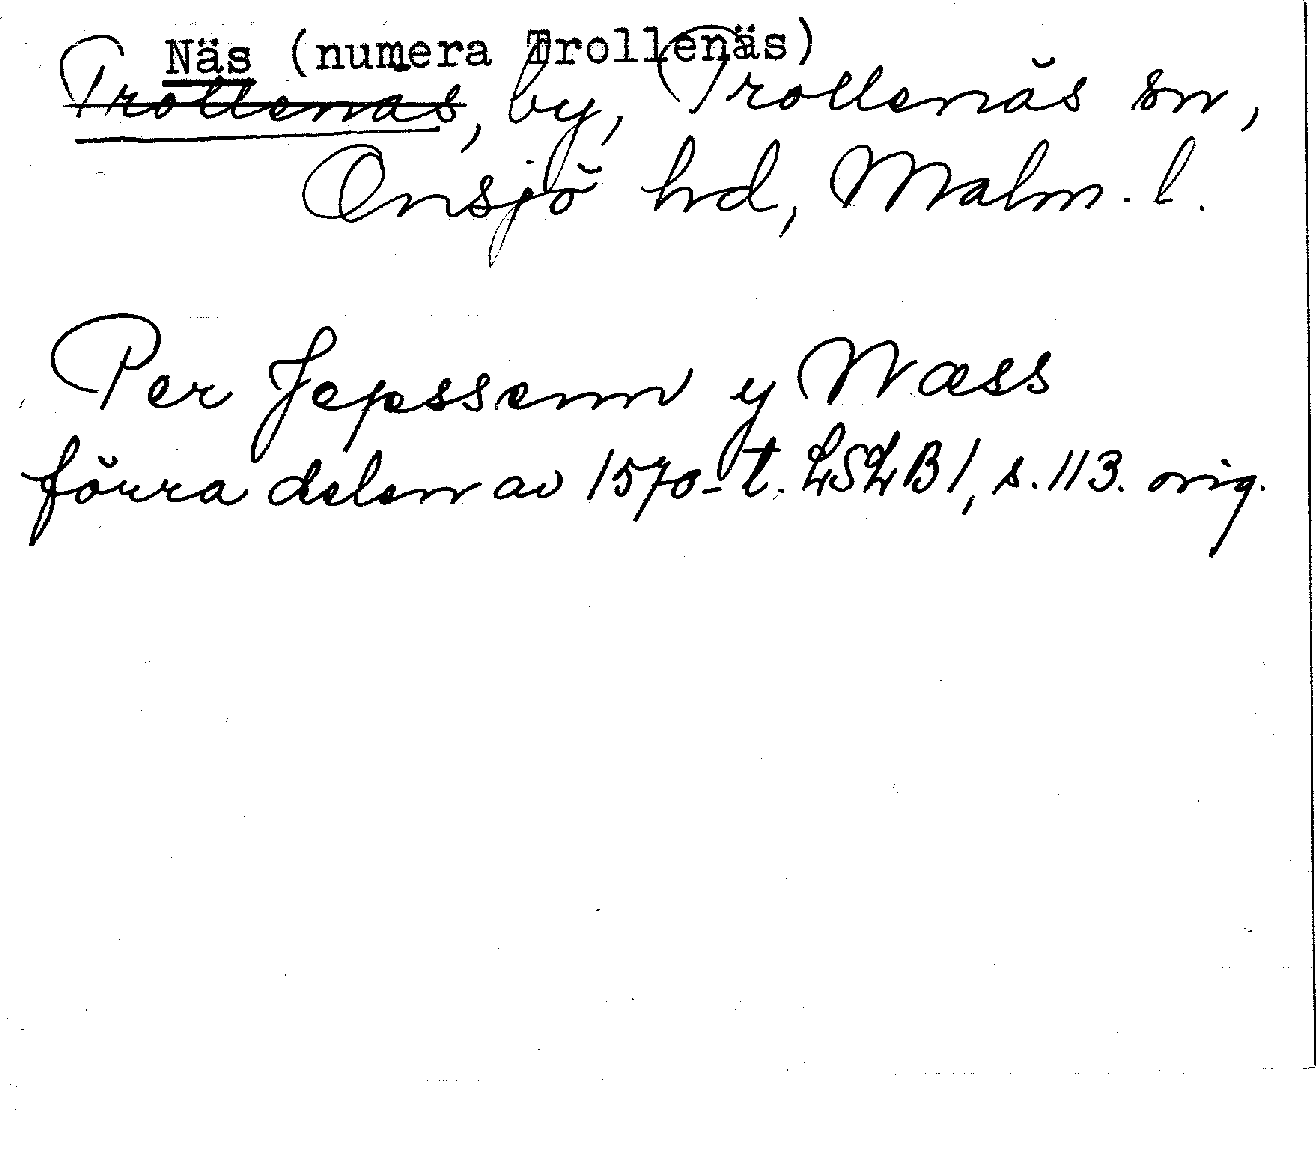 Näs (numera Trollenäs)
Trollenäs, by, Trollenäs sn,
Onsjö hd, Malm. l.
Per Jepssenn y Næss
förra delen av 1570-t. LSLB1, s. 113. orig.